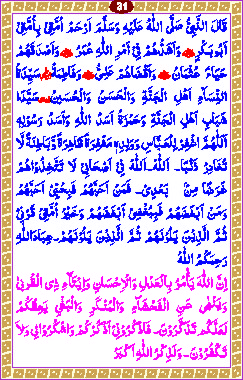 31
قَالَ النَّبِيُّ صَلَّى اللهُ عَلَيْهِ وَسَلَّمَ اَرْحَمُ اُمَّتِيْ بِاُمَّتِيْ
اَبُوْبَكْرٍ وَاَشَدُّهُمْ فِيْ اَمْرِ اللهِ عُمَرُ وَاَصْدَقُهُمْ
حَيَاءً عُثْمَانُ وَاَقْضَاهُمْ عَلِيٌّ وَفَاطِمَةُ سَيِّدَةُ
النِّسَآءِ اَهْلِ الْجَنَّةِ وَالْحَسَنُ وَالْحُسَيْنُ سَيِّدَا
شَبَابِ اَهْلِ الْجَنَّةِ وَحَمْزَةُ اَسَدُ اللهِ وَاَسَدُ رَسُوْلِهٖ
اَللّٰهُمَّ اغْفِرْ لِلْعَبَّاسِ وَوَلَدِهٖ مَغْفِرَةً ظَاهِرَةً وَّبَاطِنَةً لَّا
تُغَادِرُ ذَنْبًا۔ اَللهَ۔اَللهَ فِيْ اَصْحَابِيْ لَا تَتَّخِذُوْاهُمْ
غَرَضًا مِنْ بَعْدِيْ۔ فَمَنْ اَحَبَّهُمْ فَبِحُبِّيْ اَحَبَّهُمْ
وَمَنْ اَبْغَضَهُمْ فَبِبُغْضِيْ اَبْغَضَهُمْ وَخَيْرُ اُمَّتِيْ قَرْنِيْ
ثُمَّ الَّذِيْنَ يَلُوْنَهُمْ ثُمَّ الَّذِيْنَ يَلُوْنَهُمْ۔ عِبَادَاللهِ
رَحِمَكُمُ اللهُ
اِنَّ اللهَ يَاْمُرُ بِالْعَدْلِ وَالْاِحْسَانِ وَاِيْتَآءِ ذِى الْقُرْبٰى
وَيَنْهٰى عَنِ الْفَحْشَآءِ وَالْمُنْكَرِ وَالْبَغْيِ يَعِظُكُمْ
لَعَلَّكُمْ تَذَكَّرُوْنَ۔ فَاذْكُرُوْنِيْ اَذْكُرْكُمْ وَاشْكُرُوْالِيْ وَلَا
تَكْفُرُوْنِ۔ وَلَذِكْرُ اللهِ اَكْبَرُ